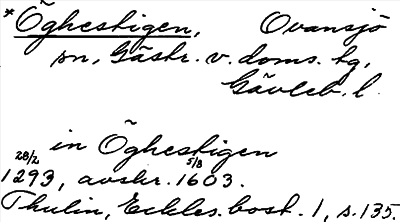 *Öghestigen, Ovansjö
sn, Gästr. v. doms. tg,
Gävleb. l.
in Öghestigen
28/2 1293, avskr. 5/8 1603.
Thulin, Eckles. bost. 1, s. 135.